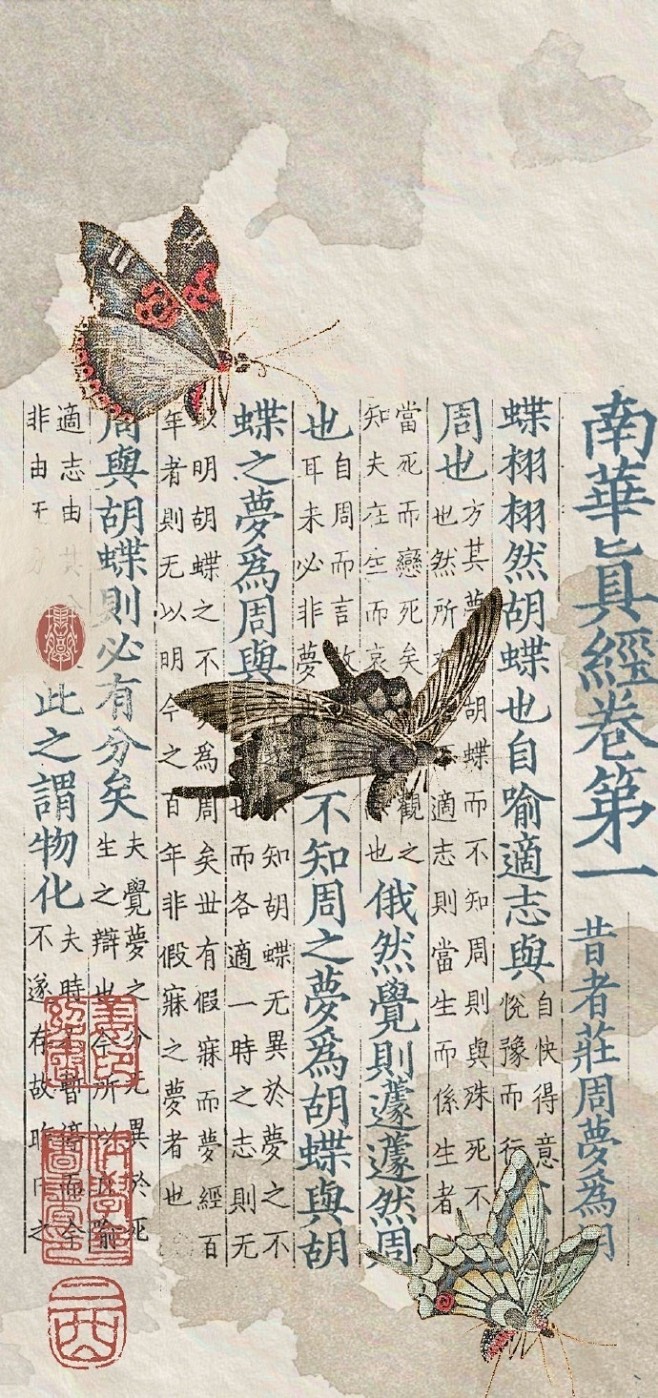 南華眞經卷第一
昔者莊周夢爲胡
蝶栩栩然胡蝶也自喻適志與
自快得意
悅豫而行
周也
方其夢 胡蝶而不知周則與殊死不
也然所 適志則當生而係生者
當死而戀死矣 觀之
知夫在生而哀 也
俄然覺則蘧蘧然周
也
自周而言故
耳未必非夢
不知周之夢爲胡蝶與胡
蝶之夢爲周與
知胡蝶无異於夢之不
也而各適一時之志則无
以明胡蝶之不 爲周矣世有假寐而夢經百
年者則无以明今之百年非假寐之夢者也
周與胡蝶則必有分矣
夫覺夢之分无異於死
生之辯也今所以 喻
適志由其
非由无
此之謂物化
夫時不暫停而今
不遂存故昨日之
二酉